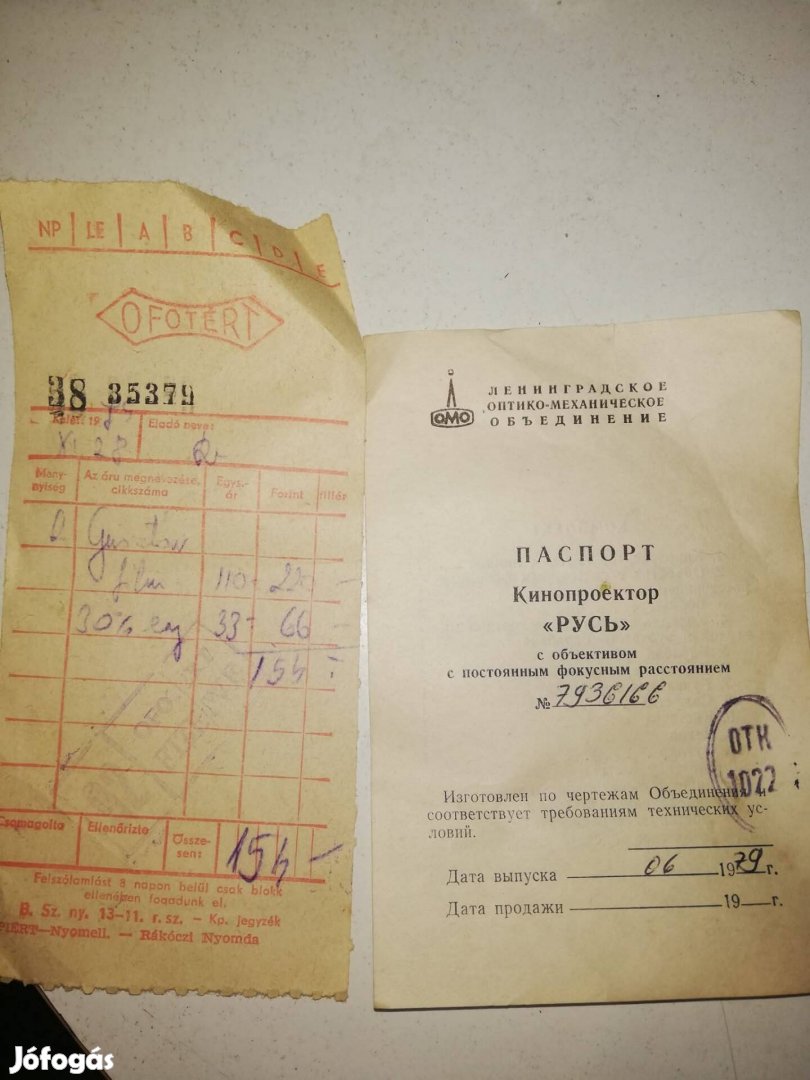 NP LE A B C D E
OFOTÉRT
38 35379
Kelet: 19 Eladó neve:
XI 28
Meny- Az áru megnevezése, Egys.- Forint fillér
nyiség cikkszáma ár
2
film 110- 220 -
30% 33- 66 -
154 -
Csomagolta Ellenőrizte Össze- 154 -
sen:
Felszólamlást 8 napon belül csak blokk
ellenében fogadunk el.
B. Sz. ny. 13-11. r. sz. - Kp. jegyzék
PIÉRT-Nyomell. - Rákóczi Nyomda
ЛЕНИНГРАДСКОЕ
ОПТИКО-МЕХАНИЧЕСКОЕ
ОБЪЕДИНЕНИЕ
ЛОМО
ПАСПОРТ
Кинопроектор
«РУСЬ»
с объективом
с постоянным фокусным расстоянием
№ 7936166
ОТК
1022
Изготовлен по чертежам Объединения и
соответствует требованиям технических ус-
ловий.
Дата выпуска 06 1979 г.
Дата продажи 19 г.
Jófogás